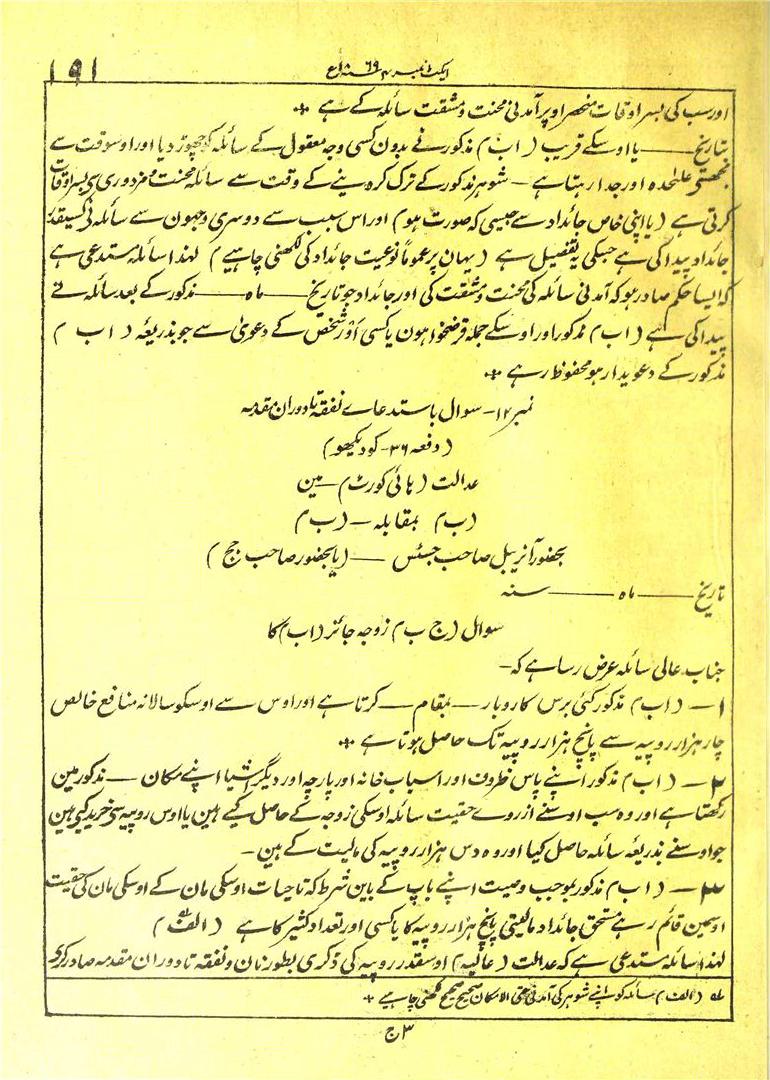 ایکٹ نمبر ۴ سنہ ۱۸۶۹ع
۱۹۱
اور سب کی بسر اوقات منحصر اوپر آمدنی محنت و مشقت سائلہ کے ہے ٭
بتاریخ —— یا اوسکے قریب ( اب ) مذکور نے بدون کسی وجہ معقول کے سائلہ کو چھوڑ دیا اور اوسوقت سے
علٰحدہ اور جدا رہتا ہے — شوہر مذکور کے ترک کر دینے کے وقت سے سائلہ محنت مزدوری سے بسر اوقات
کرتی ہے ( یا اپنی خاص جائداد سے جیسی کہ صورت ہو ) اور اس سبب سے دوسری وجہوں سے سائلہ نے کسیقدر
جائداد پیدا کی ہے جسکی یہ تفصیل ہے ( یہان پر عموماً نوعیت جائداد کی لکھنی چاہیے ) لہذا سائلہ مستدعی ہے
کہ ایسا حکم صادر ہو کہ آمدنی سائلہ کی محنت و مشقت کی اور جائداد جو تاریخ —— ماہ —— مذکور کے بعد سائلہ نے
پیدا کی ہے ( اب ) مذکور اور اوسکے جملہ قرضخواہون یا کسی اور شخص کے دعویٰ سے جو بذریعہ ( اب )
مذکور کے دعویدار ہو محفوظ رہے ٭
نمبر ۱۲ — سوال باستدعاے نفقہ تا دوران مقدمہ
( دفعہ ۳۶ - کو دیکھو )
عدالت ( ہائی کورٹ ) — مین
( ب ) بمقابلہ — ( ب )
بحضور آنریبل صاحب جسٹس — ( یا بحضور صاحب جج )
تاریخ —— ماہ —— سنہ
سوال ( ج ب ) زوجہ جائز ( اب ) کا
جناب عالی سائلہ عرض رسا ہے کہ —
۱ — ( اب ) مذکور کئی برس کاروبار — بمقام — کرتا ہے اور اوس سے اوسکو سالانہ منافع خالص
چار ہزار روپیہ سے پانچ ہزار روپیہ تک حاصل ہوتا ہے ٭
۲ — ( اب ) مذکور اپنے پاس ظروف اور اسباب خانہ اور پارچہ اور دیگر اشیا اپنے مکان — مذکور مین
رکھتا ہے اور وہ سب اوسنے از روے حقیت سائلہ اوسکی زوجہ کے حاصل کیے ہین یا اوس روپیہ سے خرید کیے ہین
جو اوسنے بذریعہ سائلہ حاصل کیا اور وہ دس ہزار روپیہ کی مالیت کے ہین —
۳ — ( اب ) مذکور بموجب وصیت اپنے باپ کے باین شرط کہ تا حیات اوسکی مان کے اوسکی مان کی حقیت
اوسمین قائم رہے مستحق جائداد مالیتی پانچ ہزار روپیہ کا یا کسی اور تعداد کثیر کا ہے ( الف ) ؎
لہذا سائلہ مستدعی ہے کہ عدالت ( عالیہ ) اوسقدر روپیہ کی ڈگری بطور نان و نفقہ تا دوران مقدمہ صادر کرے
؎ ( الف ) سائلہ کو اپنے شوہر کی آمدنی حتی الامکان صحیح صحیح لکھنی چاہیے ٭
۳ ج